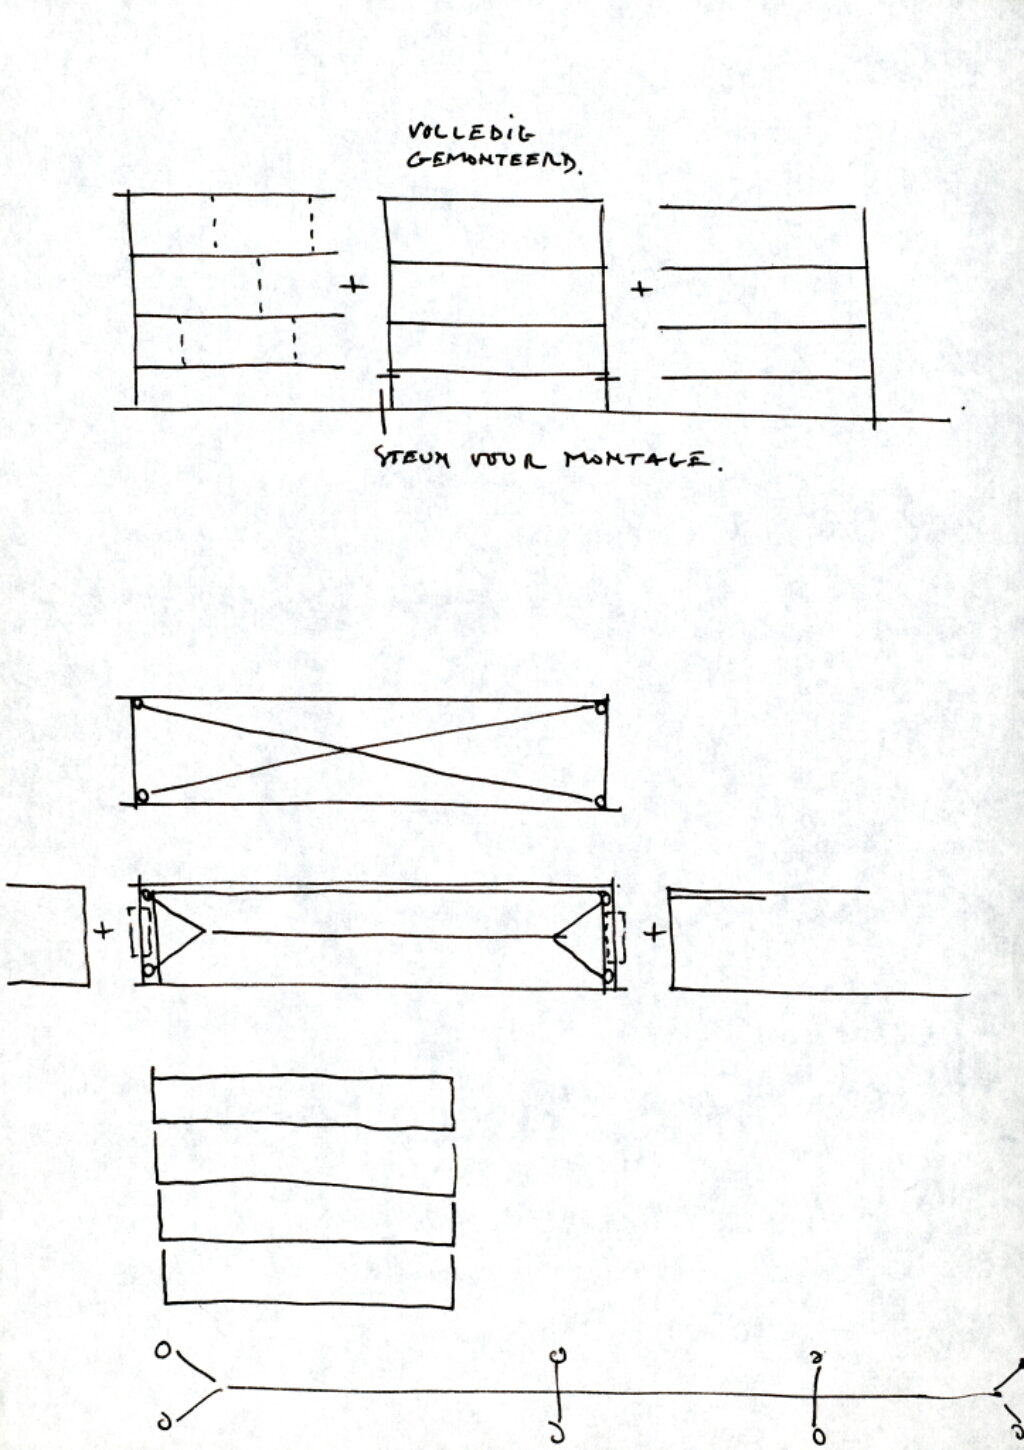 VOLLEDiG
GEMONTEERD.
STEUN VOOR MONTAGE.